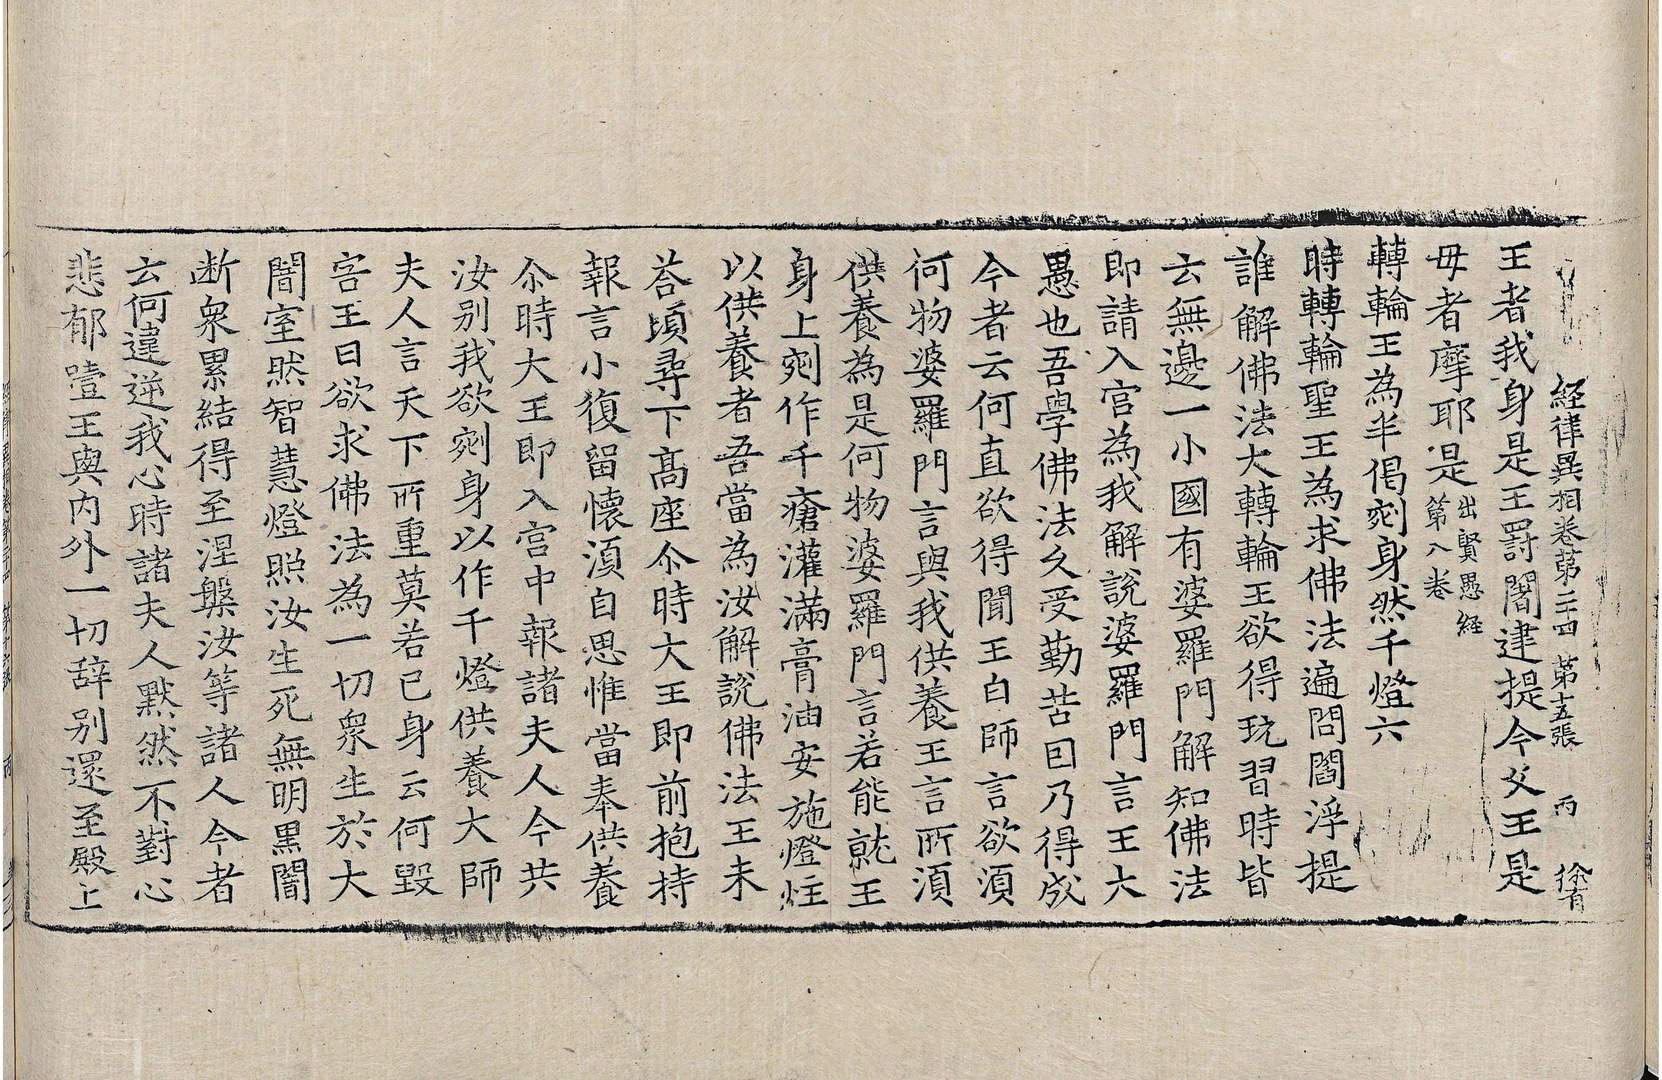 経律異相卷第二十四　第十五張　丙　徐有
王者我身是王罸闍逮提今父王是
母者摩耶是出賢愚経第八卷
轉輪王為半偈剜身然千燈六
時轉輪聖王為求佛法遍問閻浮提
誰解佛法大轉輪王欲得翫習時皆
云無邊一小國有婆羅門解知佛法
即請入宫為我解說婆羅門言王大
愚也吾學佛法久受勤苦囙乃得成
今者云何直欲得聞王白師言欲湏
何物婆羅門言與我供養王言所湏
供養為是何物婆羅門言若能就王
身上剜作千瘡灌滿膏油安施燈炷
以供養者吾當為汝解說佛法王未
荅頃尋下髙座尒時大王即前抱持
報言小復留懷湏自思惟當奉供養
尒時大王即入宫中報諸夫人今共
汝别我欲剜身以作千燈供養大師
夫人言天下所重莫若已身云何毀
害王曰欲求佛法為一切衆生於大
闇室然智慧燈照汝生死無明黒闇
断衆累結得至涅槃汝等諸人今者
云何違逆我心時諸夫人默然不對心
悲郁噎王與内外一切辞别還至殿上